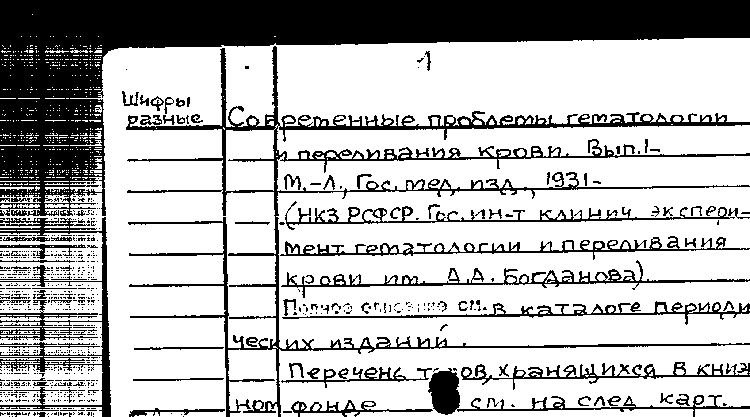 1
Шифры
разные
Современные проблемы гематологии
и переливания крови. Вып.1-
М.-Л., Гос. мед. изд., 1931-
(НКЗ РСФСР. Гос. ин-т клинич. экспери-
мент. гематологии и переливания
крови им. А.А. Богданова)
Полное описание см. в каталоге периоди
ческих изданий.
Перечень томов, хранящихся в книж
ном фонде см. на след. карт.